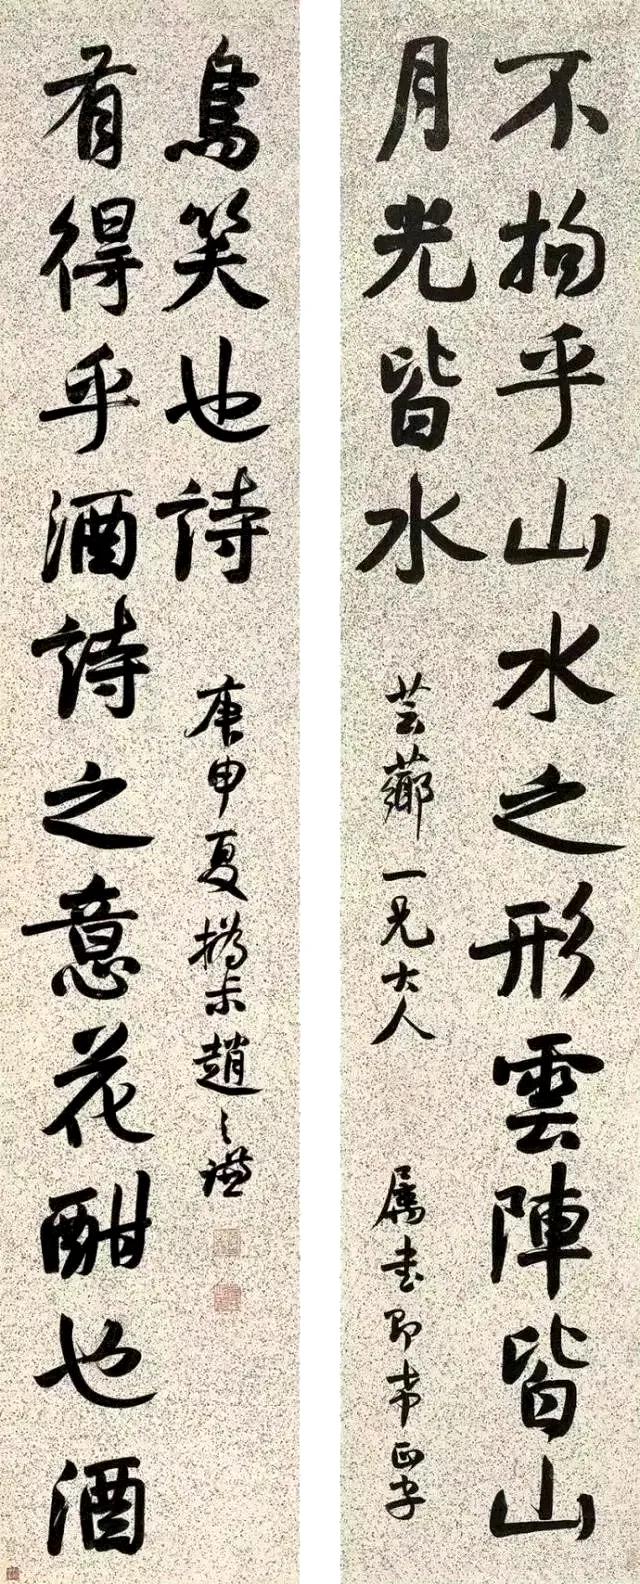 不拘乎山水之形雲陣皆山
月光皆水
芸薌一兄大人
屬書即希正字
有得乎酒詩之意花酣也酒
鳥笑也詩
庚申夏撝尗趙之謙